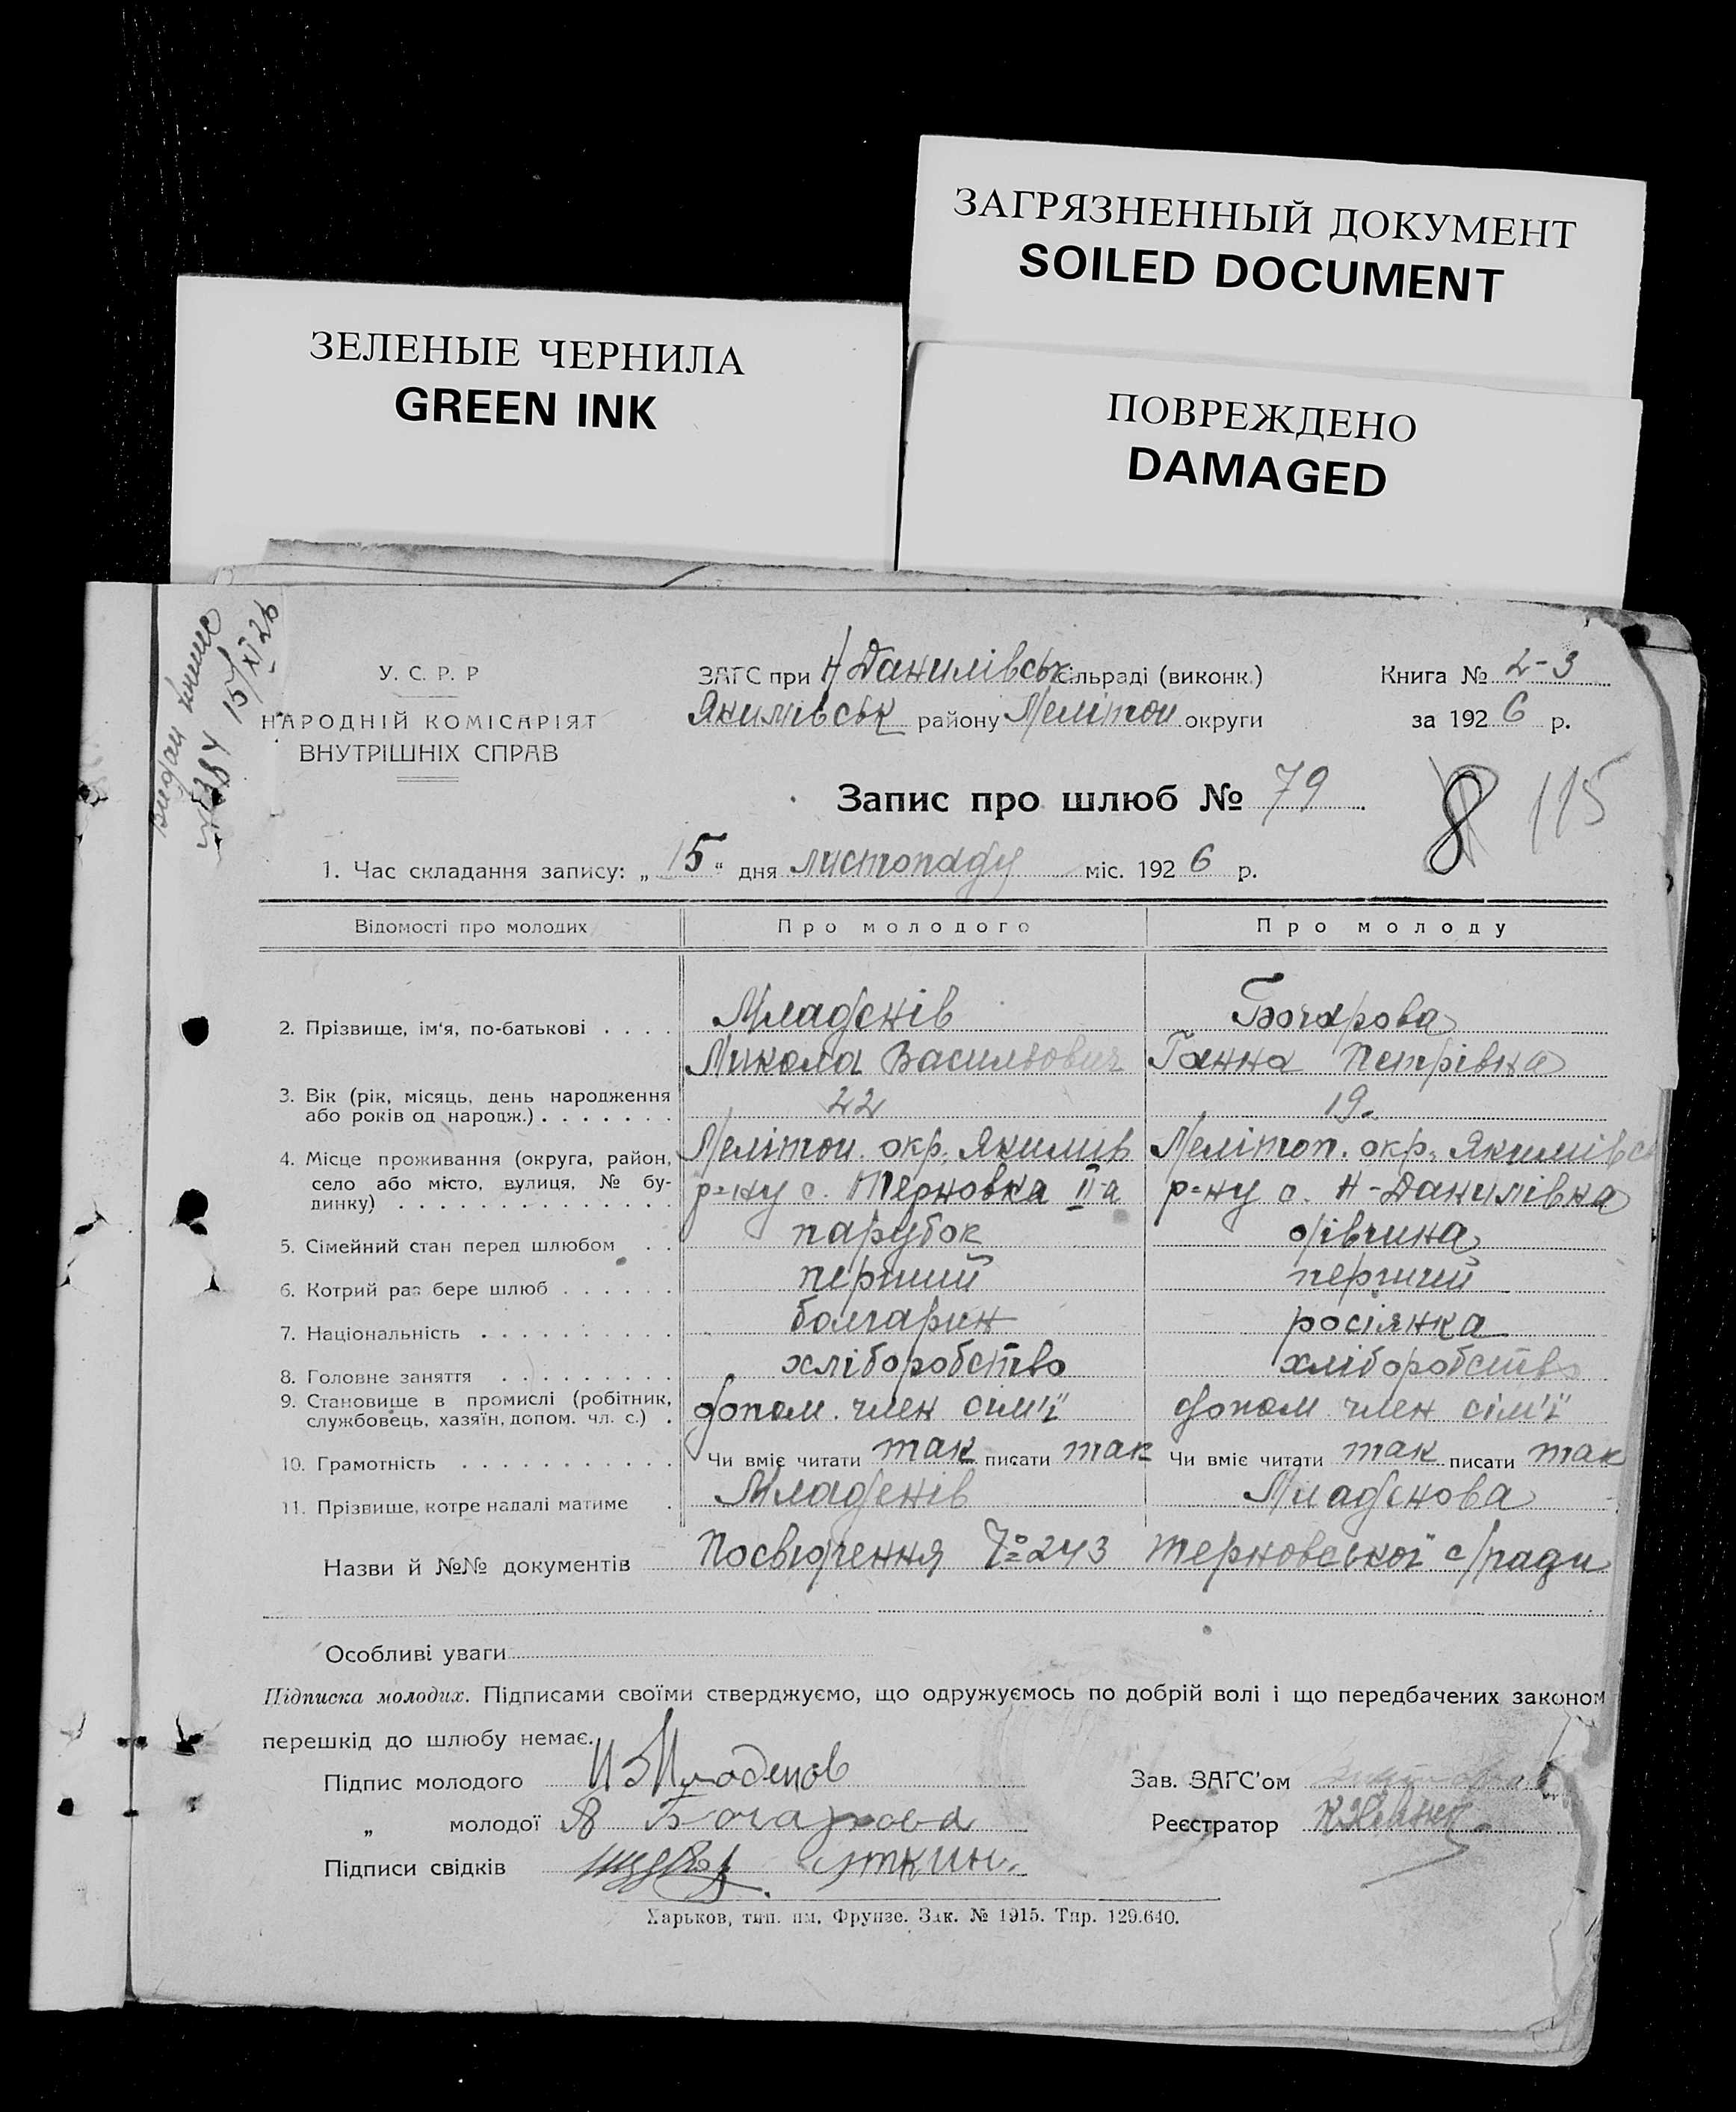 ЗАГРЯЗНЕННЫЙ ДОКУМЕНТ
SOILED DOCUMENT
ЗЕЛЕНЫЕ ЧЕРНИЛА
GREEN INK
ПОВРЕЖДЕНО
DAMAGED
Видан
№ 384 15/XI 26
У. С. Р. Р
НАРОДНІЙ КОМІСАРІЯТ
ВНУТРІШНІХ СПРАВ
ЗАГС при Н Данилівськ сільраді (виконк.)
Якимівськ району Меліточ округи
Книга № 2-3
за 192 6 р.
Запис про шлюб № 79
8 115
1. Час складання запису: „ 15 “ дня листопаду міс. 192 6 р.
Відомості про молодих Про молодого Про молоду
2. Прізвище, ім'я, по-батькові . . . . Младєнів Бочарова
Микола Васильович Ганна Петрівна
3. Вік (рік, місяць, день народження
або років од народж.) . . . . . . . 22 19.
4. Місце проживання (округа, район, Меліточ. окр. Якимів Мелітоп. окр. Якимівс
село або місто, вулиця, № бу-
динку) . . . . . . . . . . . . . . р=ну с. Терновка ІІ-а р=ну с. Н-Данилівка
5. Сімейний стан перед шлюбом . . парубок дівчина
6. Котрий раз бере шлюб . . . . . . перший перший
7. Національність . . . . . . . . . . болгарин росіянка
8. Головне заняття . . . . . . . . . хліборобство хліборобство
9. Становище в промислі (робітник,
службовець, хазяїн, допом. чл. с.) . допом. член сім'ї допом член сім'ї
10. Грамотність . . . . . . . . . . . Чи вміє читати так писати так Чи вміє читати так писати так
11. Прізвище, котре надалі матиме . Младєнів Младєнова
Назви й №№ документів Посвідчення №243 Терновської с/ради
Особливі уваги
Підписка молодих. Підписами своїми стверджуємо, що одружуємось по добрій волі і що передбачених законом
перешкід до шлюбу немає.
Підпис молодого Н Младенов
Зав. ЗАГС'ом
„ молодої Я Бочарова
Реєстратор
Підписи свідків Уткин.
Харьков, тип. им. Фрунзе. Зак. № 1915. Тир. 129.640.